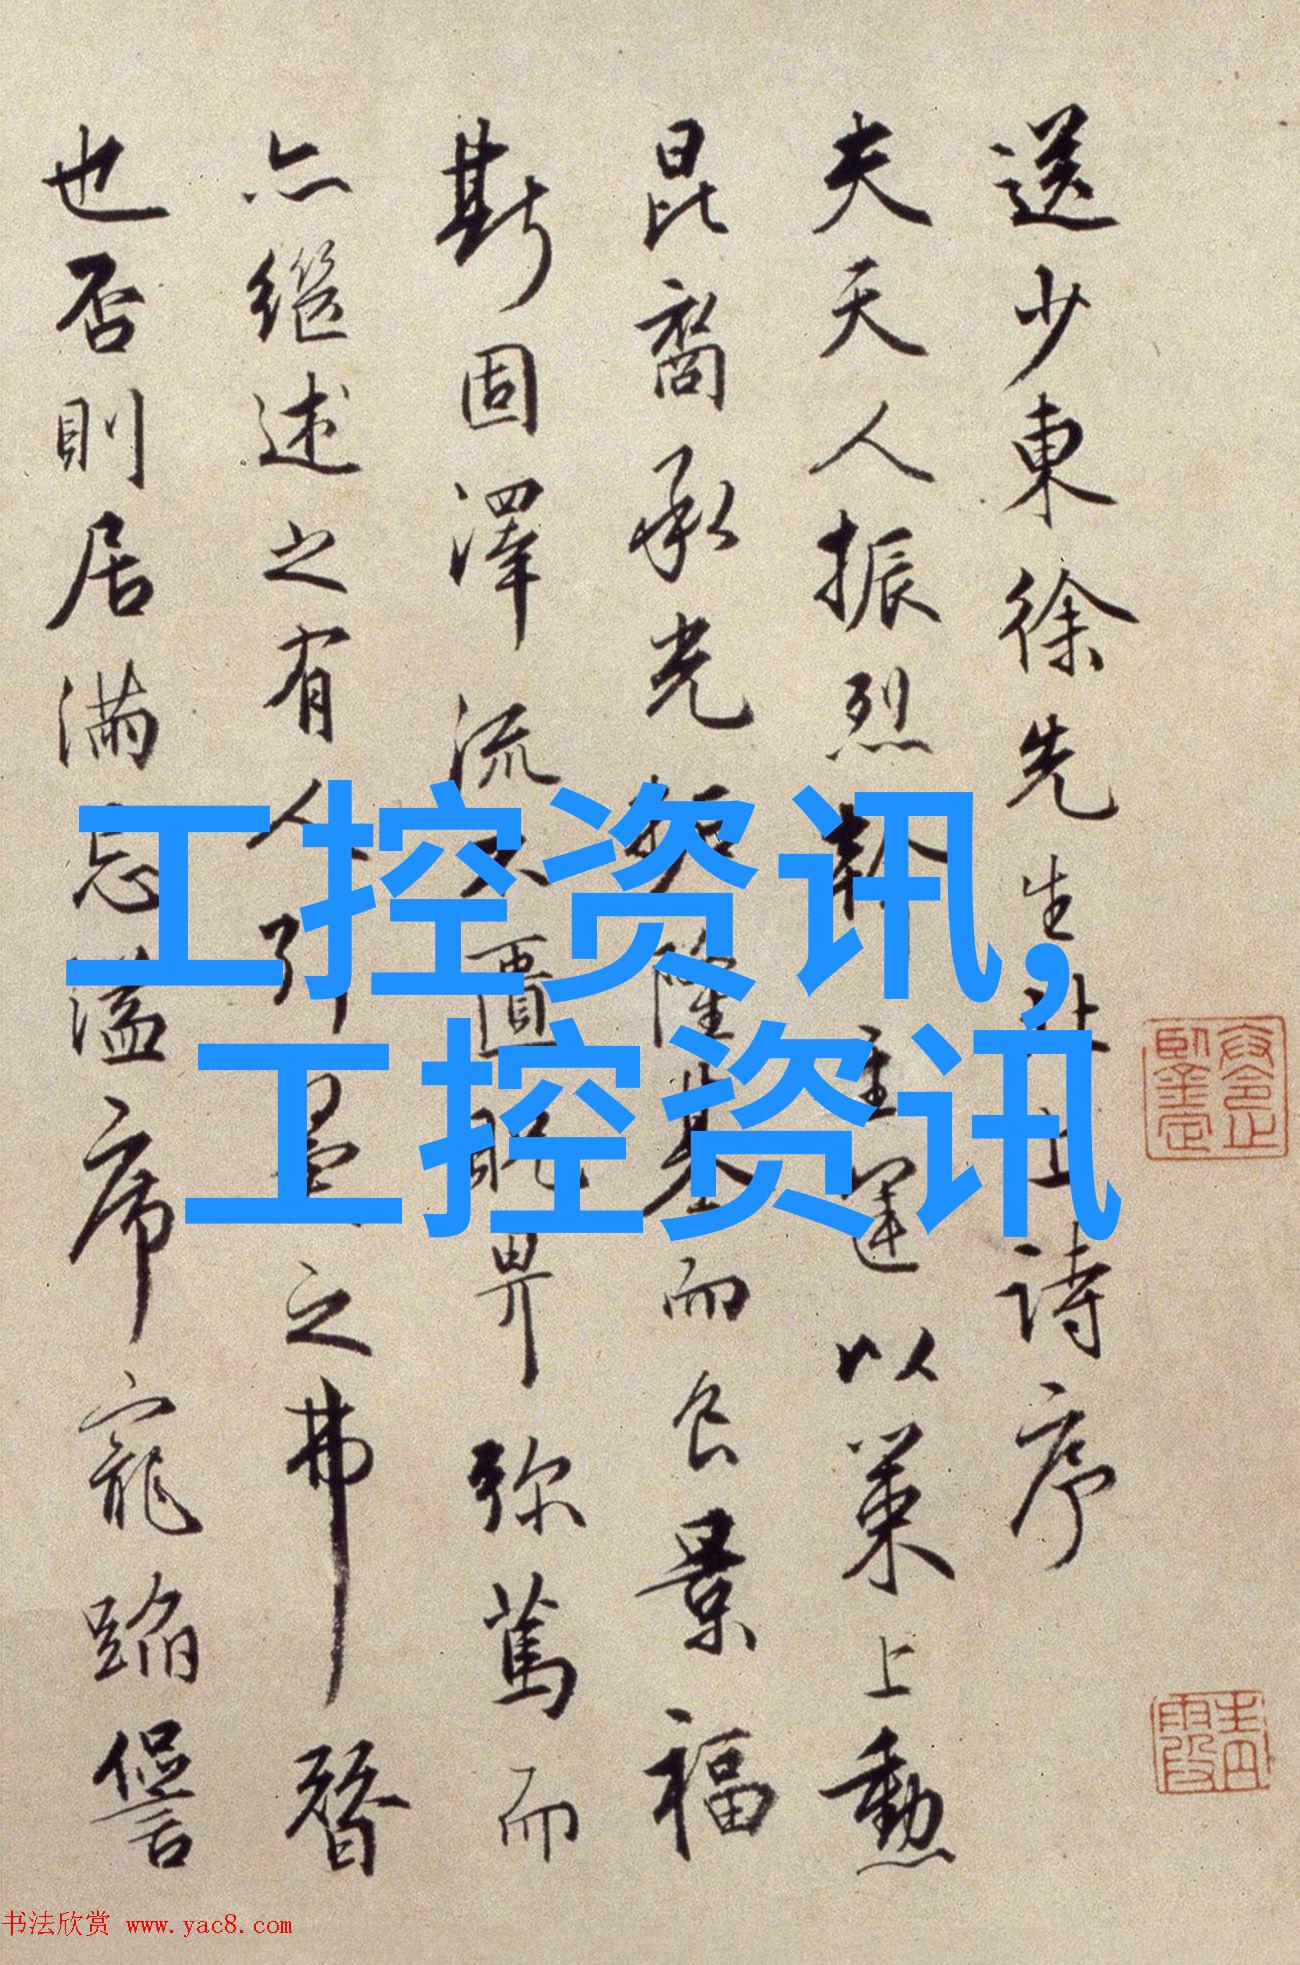 送少東徐先生北上詩序
夫天人振烈 運以策上勳
昆裔承光 隆基而食景福
斯固澤流 匱 畀弥篤而
亦繼述之有人 之弗替
也否則居滿忘溢席寵蹈僣
工控资讯,
工控资讯
书法欣赏 www.yac8.com